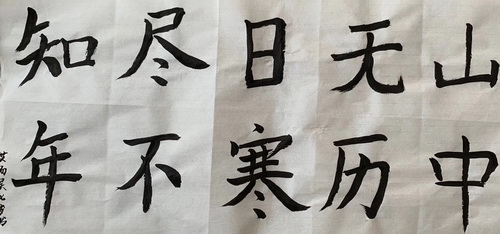 山中
无历
日寒
尽不
知年